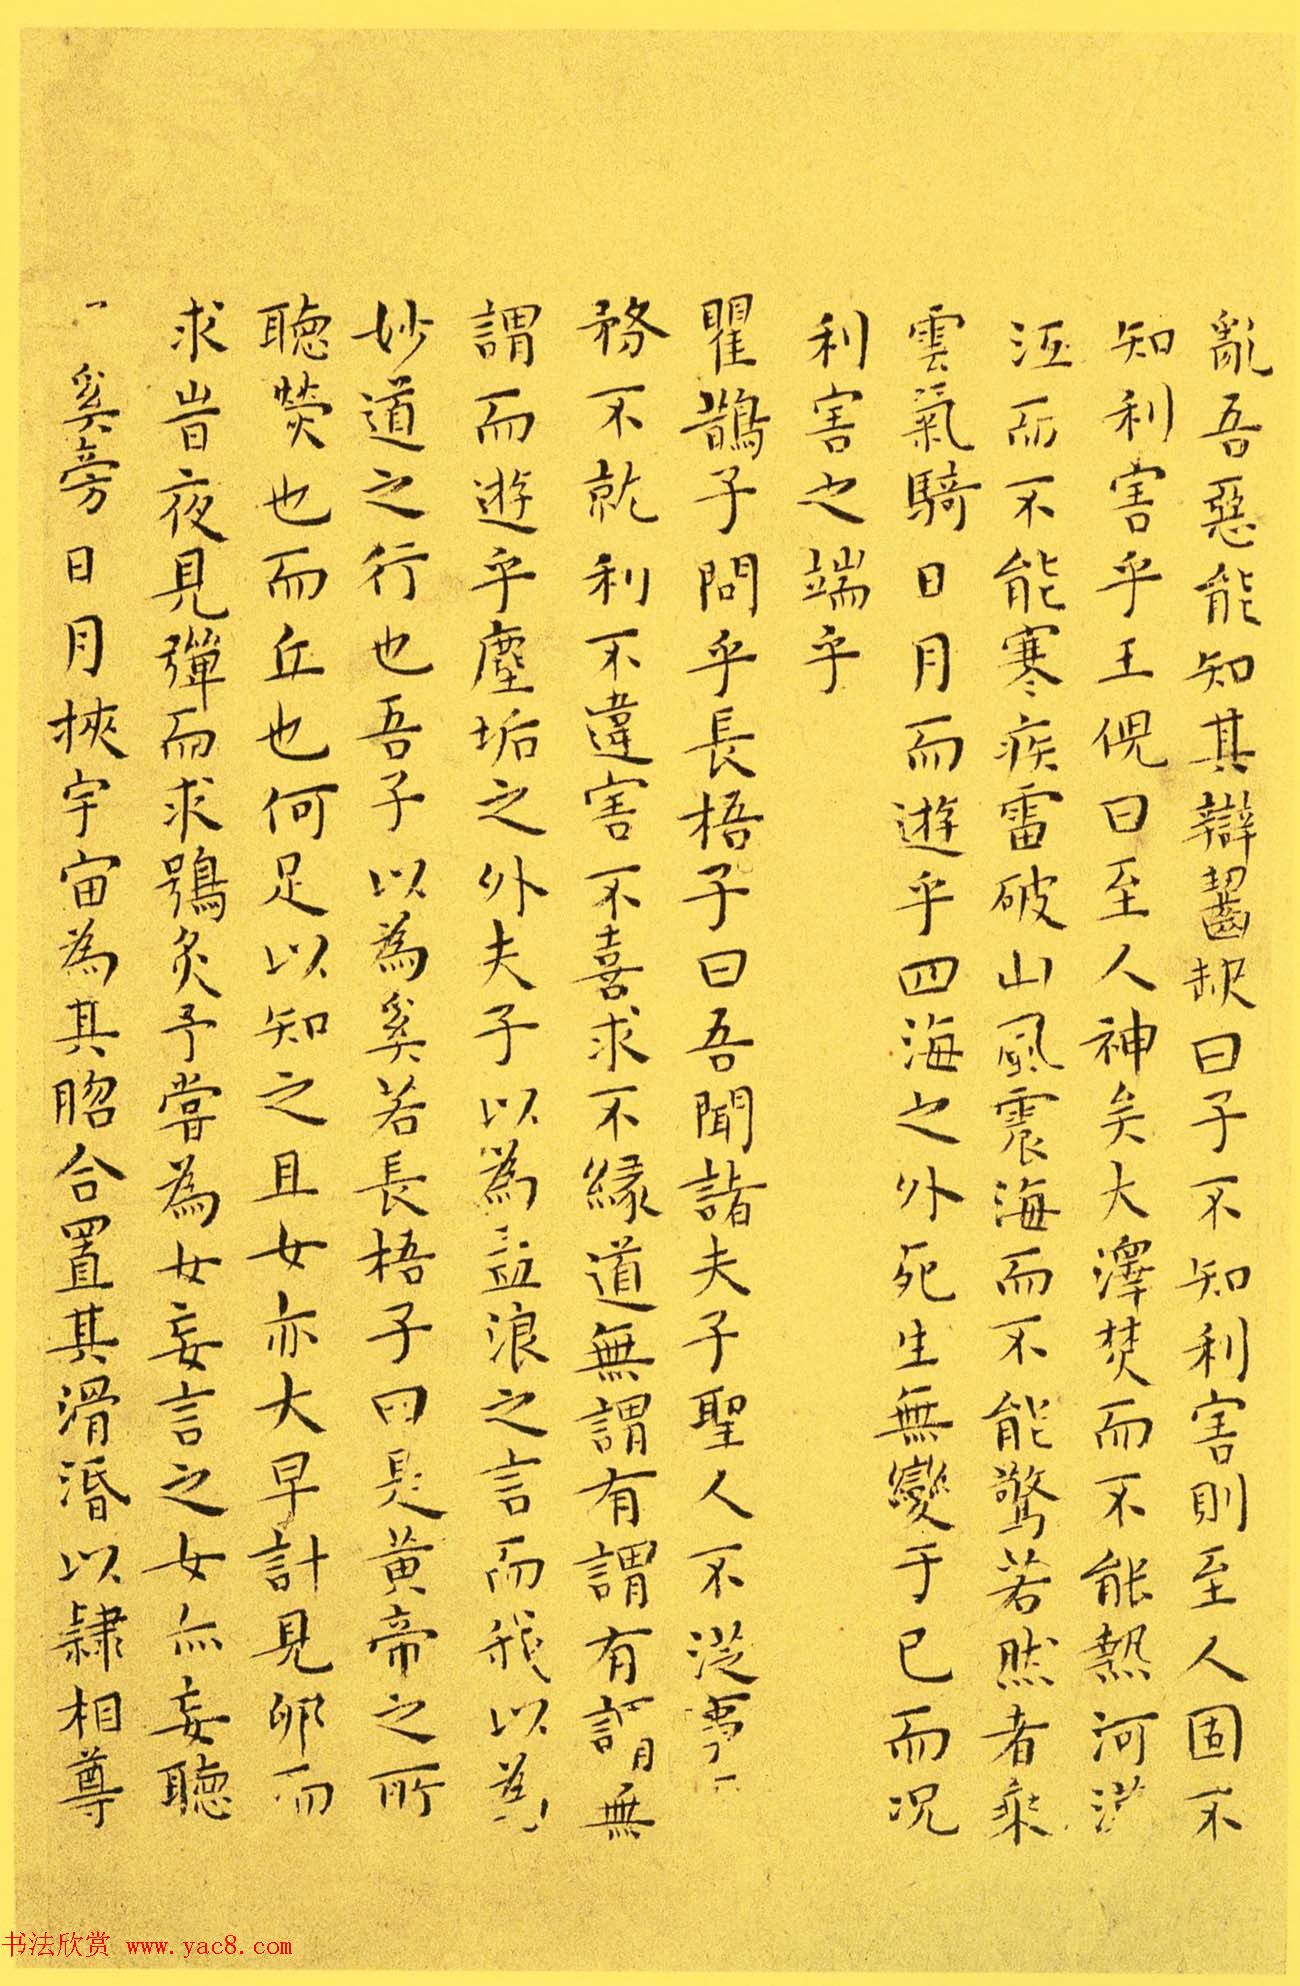 亂吾惡能知其辯齧缺曰子不知利害則至人固不
知利害乎王倪曰至人神矣大澤焚而不能熱河漢
沍而不能寒疾雷破山風震海而不能驚若然者乘
雲氣騎日月而遊乎四海之外死生無變于已而況
利害之端乎
瞿鵲子問乎長梧子曰吾聞諸夫子聖人不從事
務不就利不違害不喜求不緣道無謂有謂有謂無
謂而遊乎塵垢之外夫子以為孟浪之言而我以為
妙道之行也吾子以為奚若長梧子曰是黃帝之所
聽熒也而丘也何足以知之且女亦大早計見卵而
求旹夜見彈而求鴞炙予嘗為女妄言之女亦妄聽
奚旁日月挾宇宙為其脗合置其滑湣以隸相尊
书法欣赏 www.yac8.com